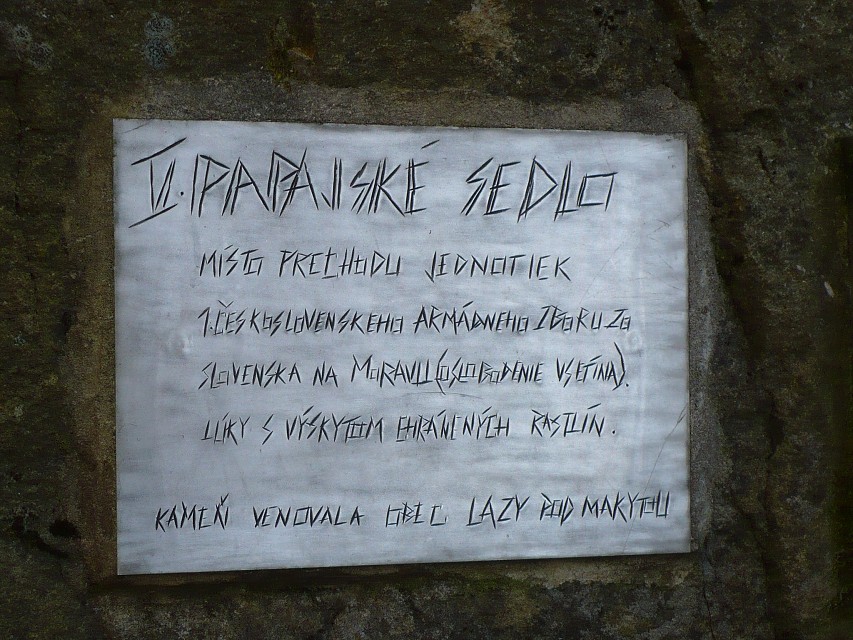 VI. PAPAJSKÉ SEDLO
MÍSTO PRECHODU JEDNOTIEK
1. ČESKOSLOVENSKEHO ARMÁDNEHO ZBORU ZO
SLOVENSKA NA MORAVU (OSLOBODENIE VSETÍNA).
LÚKY S VÝSKYTOM CHRÁNENÝCH RASTLÍN.
KAMEŇ VENOVALA OBEC LAZY POD MAKYTOU